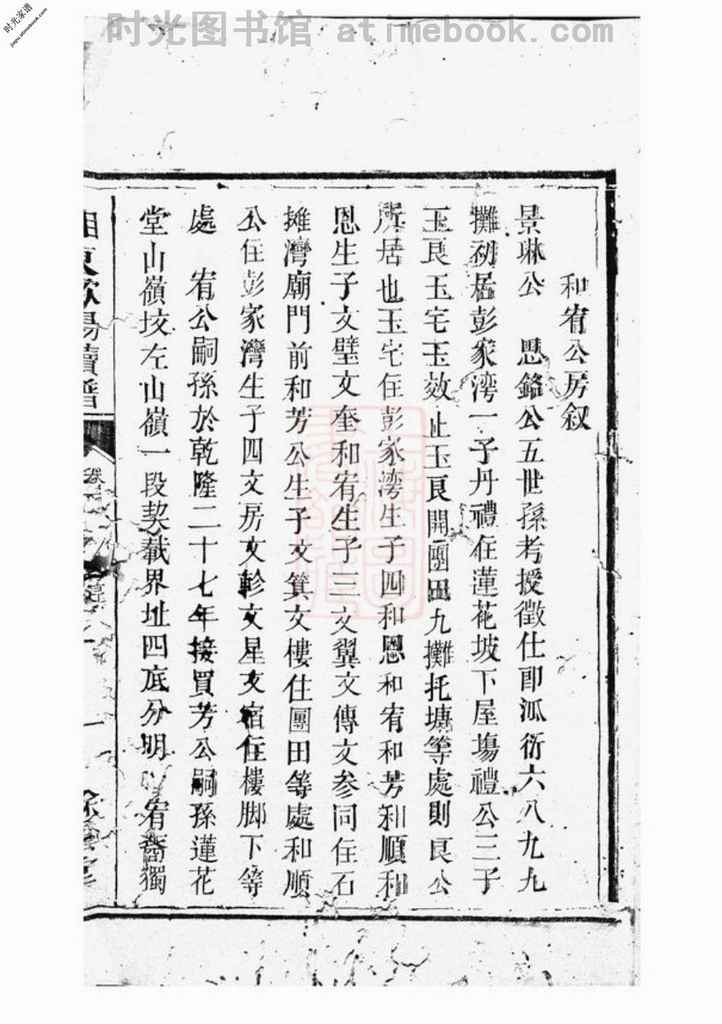 时光图书馆 atimebook.com
时光家谱
jiapu.atimebook.com
和宥公房叙
景琳公 思銘公五世孫考授徵仕郎派衍六八九九
攤初居彭家湾一子丹禮住蓮花坡下屋塲禮公三子
玉良玉宅玉效 止玉良開團田九攤托塘等處則良公
所居也玉宅住彭家湾生子四和恩和宥和芳和順和
恩生子文璧文奎和宥生子三文翼文傳文參同住石
攤灣廟門前和芳公生子文箕文樓住團田等處和順
公住彭家灣生子四文房文軫文星文宿住樓脚下等
處 宥公嗣孫於乾隆二十七年接買芳公嗣孫蓮花
堂山嶺垵左山嶺一段契載界址四底分明 宥裔獨
湘東歐陽續譜
卷